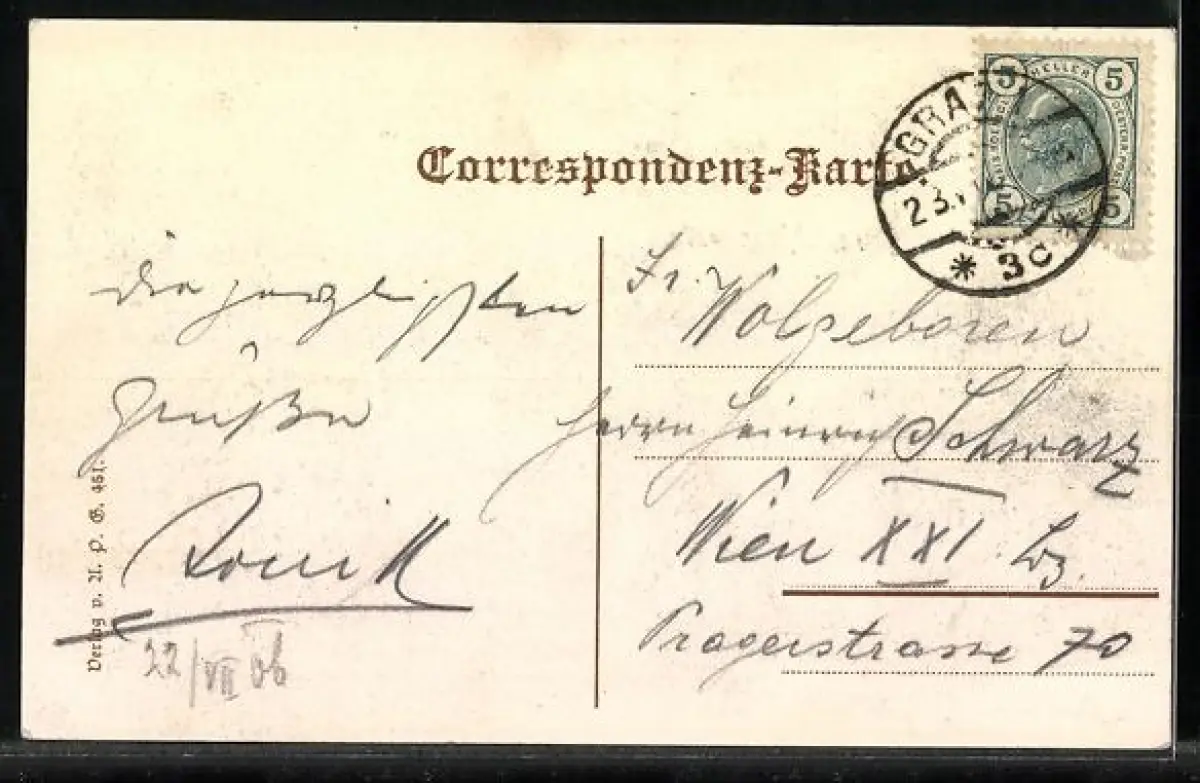 Correspondenz-Karte
5 HELLER 5
5 5
GRA
23.
* 3c *
Die herzlichsten
Grüße
22/VII 06
Verlag v. A. P. G. 451.
Sr. Wolgeboren
Herrn Heinrich Schwarz
Wien XXI. Bz.
Pragerstrasse 70